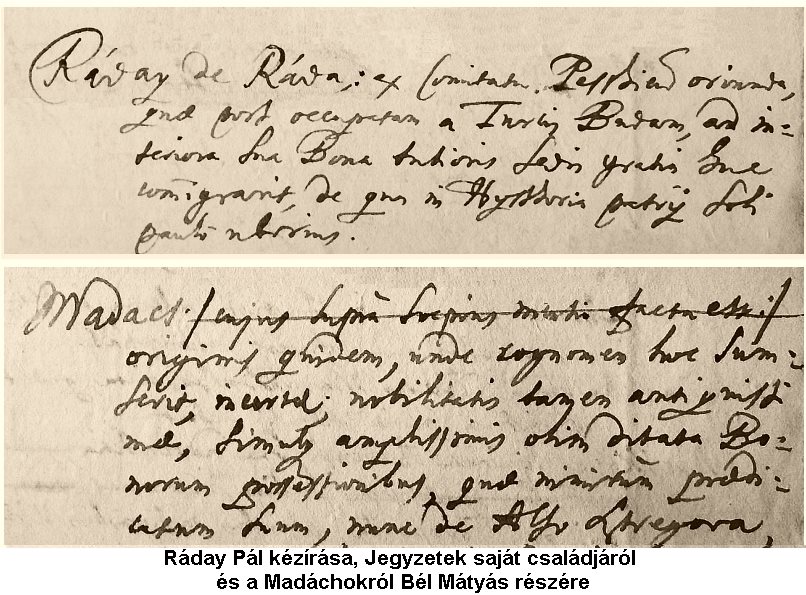 Ráday de Ráda; ex Comitatu Pesthien oriunda,
quae post occupatam a Turcis Budam, ad in-
teriora sua Bona tutioris sedis gratia huc
comigrarit, de qua in Hysthoria patrij soli
paulo uberius.
Madacs / cujus supra saepius mentio facta est: /
originis quidem, unde cognomen hoc sum-
serit, incertae; nobilitatis tamen antiquissi
mae, simulq amplissimis olim ditata Bo-
norum possessionibus, quae praedi-
catum suum, nunc de Also Sztregova,
Ráday Pál kézírása, Jegyzetek saját családjáról
és a Madáchokról Bél Mátyás részére